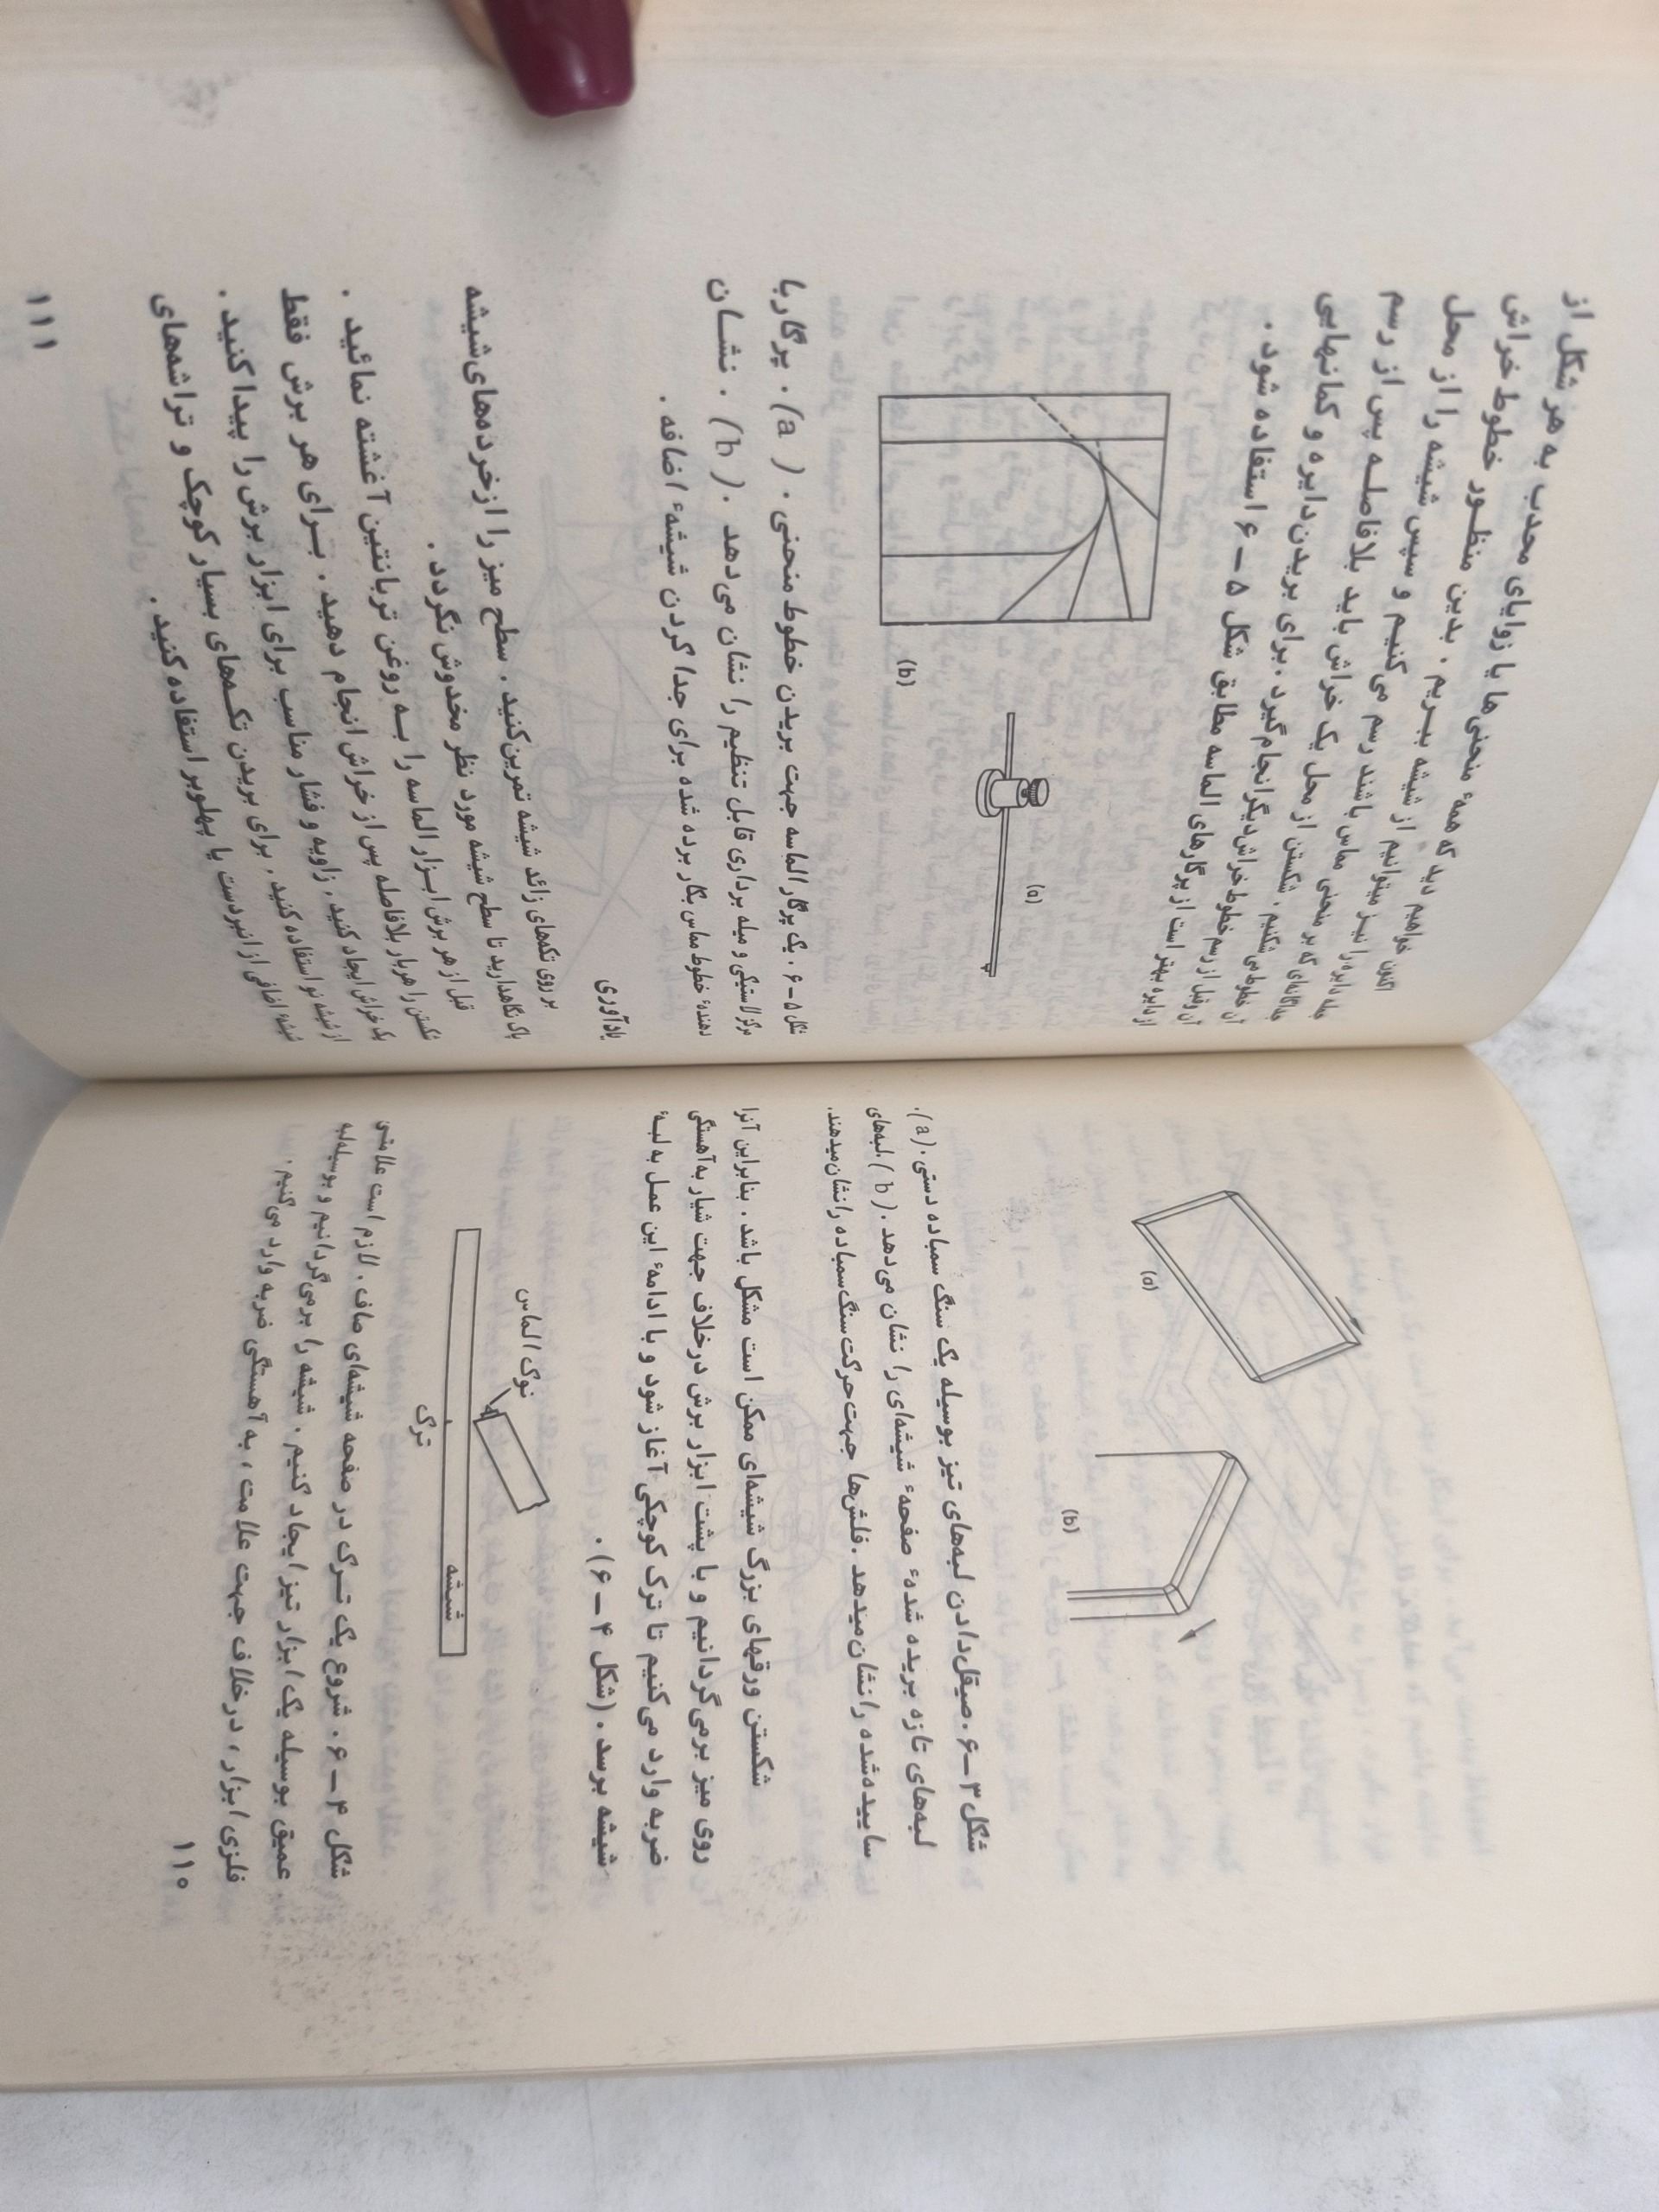 (a)
(b)
شکل ۳ – ۶ . صیقل دادن لبه‌های تیز بوسیله یک سنگ سمباده دستی . (a) .
لبه‌های تازه بریده شدهٔ صفحهٔ شیشه‌ای را نشان می‌دهد . (b) . لبه‌های
ساییده شده را نشان میدهد . فلش‌ها جهت حرکت سنگ سمباده را نشان میدهند .
شکستن ورقهای بزرگ شیشه‌ای ممکن است مشکل باشد . بنابراین آنرا
روی میز برمی‌گردانیم و با پشت ابزار برش درخلاف جهت شیار به آهستگی
ضربه وارد می‌کنیم تا ترک کوچکی آغاز شود و با ادامهٔ این عمل به لبهٔ
شیشه برسد . (شکل ۴ – ۶) .
نوک الماس
ترک
شیشه
شکل ۴ – ۶ . شروع یک تـرک در صفحه شیشه‌ای صاف . لازم است علامتی
عمیق بوسیله یک ابزار تیز ایجاد کنیم . شیشه را برمی‌گردانیم و بوسیله لبه
فلزی ابزار ، درخلاف جهت علامت ، به آهستگی ضربه وارد می‌کنیم .
۱۱۰
اکنون خواهیم دید که همهٔ منحنی‌ها یا زوایای محدب به هر شکل از
جمله دایره را نیـز میتوانیم از شیشه ببـریم . بدین منظـور خطوط خراش
جداگانه‌ای که بر منحنی مماس باشند رسم می‌کنیم و سپس شیشه را از محل
آن خطوط می‌شکنیم . شکستن از محل یک خراش باید بلافاصلـه پس از رسم
آن و قبل از رسم خطوط خراش دیگر انجام گیرد . برای بریدن دایره و کمانهایی
از دایره بهتر است از پرگارهای الماسه مطابق شکل ۵ – ۶ استفاده شود .
(a)
(b)
شکل ۵ – ۶ . یک پرگار الماسه جهت بریدن خطوط منحنی . (a) . پرگار با
مرکز لاستیکی و میله برداری قابل تنظیم را نشان می‌دهد . (b) . نشـان
دهندهٔ خطوط مماس بکار برده شده برای جدا کردن شیشهٔ اضافه .
یادآوری
بر روی تکه‌های زائد شیشه تمرین کنید . سطح میز را از خرده‌های شیشه
پاک نگاهدارید تا سطح شیشه مورد نظر مخدوش نگردد .
قبل از هر برش ابـزار الماسه را بـه روغن تربانتین آغشته نمائید .
شکستن را هربار بلافاصله پس از خراش انجام دهید . بـرای هر برش فقط
یک خراش ایجاد کنید . زاویه و فشار مناسب برای ابزار برش را پیدا کنید .
از شیشه نو استفاده کنید . برای بریدن تکـه‌های بسیار کوچک و تراشه‌های
شیشهٔ اضافی از انبردست یا پهلوبر استفاده کنید .
۱۱۱